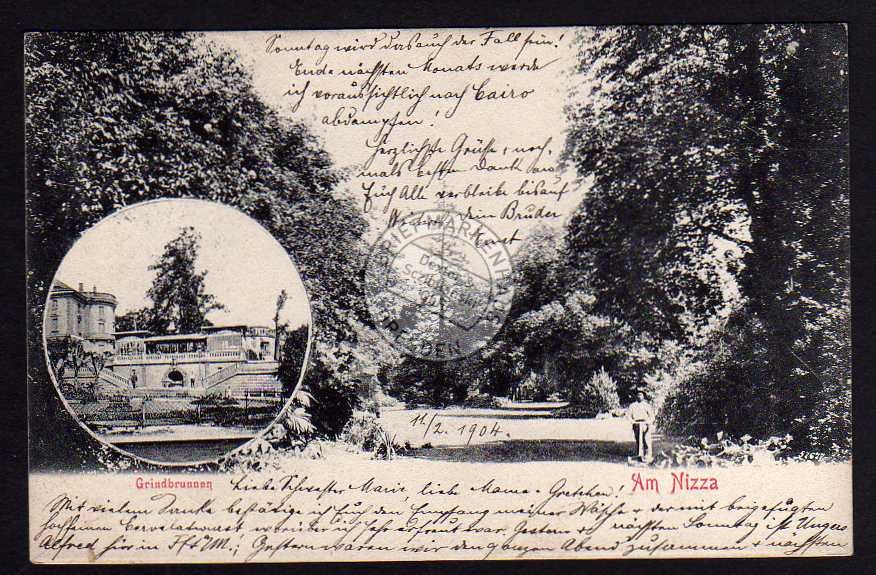 Sonntag wird das auch der Fall sein!
Ende nächsten Monats werde
ich voraussichtlich nach Cairo
abdampfen!
Herzlichste Grüße, noch-
mals besten Dank an
Euch Alle verbleibe bis auf
dein Bruder
BRIEFMARKENHAUS
DRESDEN
11/2. 1904.
Grindbrunnen
Am Nizza
Liebe Schwester Marie, liebe Mama + Gretchen!
Mit vielem Danke bestätige ich Euch den Empfang meiner Wäsche + der mit beigefügten
Cervelatwurst ich sehr erfreut war. Gestern + nächsten Sonntag ist
Alfred hier in Gestern waren wir den ganzen Abend zusammen + nächsten